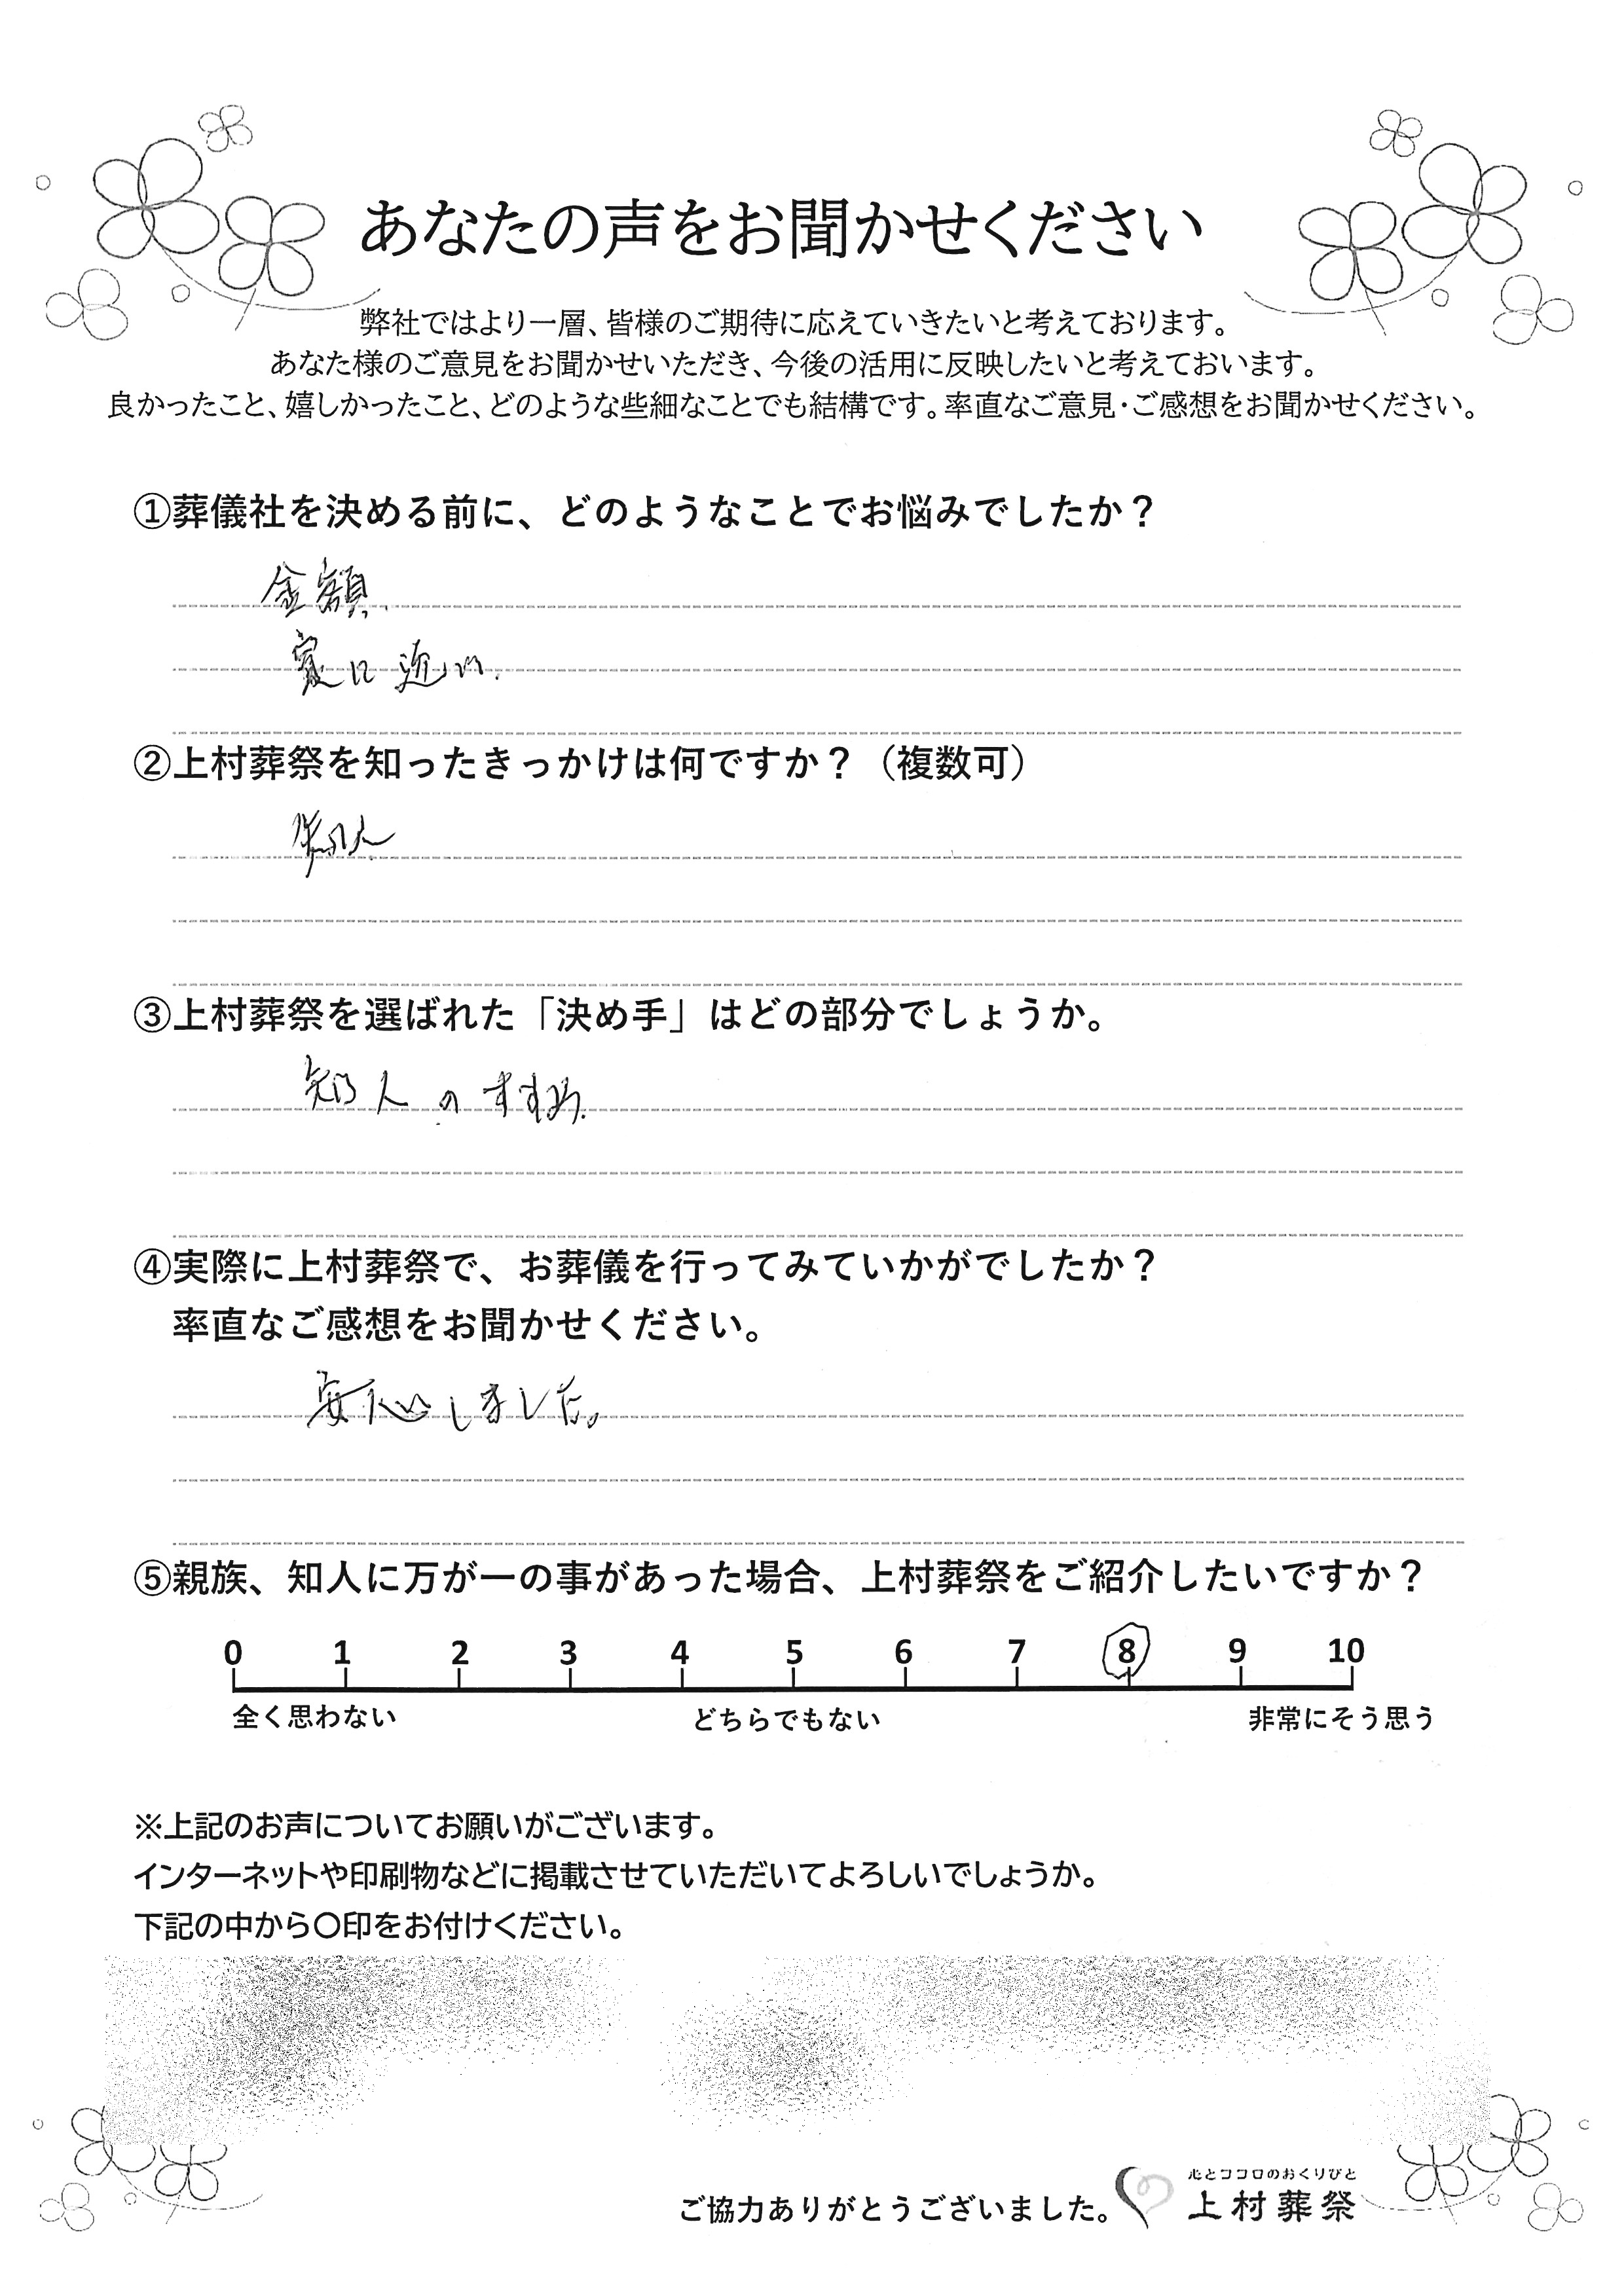 あなたの声をお聞かせください
弊社ではより一層、皆様のご期待に応えていきたいと考えております。
あなた様のご意見をお聞かせいただき、今後の活用に反映したいと考えておいます。
良かったこと、嬉しかったこと、どのような些細なことでも結構です。率直なご意見・ご感想をお聞かせください。
①葬儀社を決める前に、どのようなことでお悩みでしたか？
金額、
家に近い、
②上村葬祭を知ったきっかけは何ですか？（複数可）
知人
③上村葬祭を選ばれた「決め手」はどの部分でしょうか。
知人のすすめ
④実際に上村葬祭で、お葬儀を行ってみていかがでしたか？
率直なご感想をお聞かせください。
安心しました。
⑤親族、知人に万が一の事があった場合、上村葬祭をご紹介したいですか？
0 1 2 3 4 5 6 7 8 9 10
全く思わない どちらでもない 非常にそう思う
※上記のお声についてお願いがございます。
インターネットや印刷物などに掲載させていただいてよろしいでしょうか。
下記の中から〇印をお付けください。
心とココロのおくりびと
ご協力ありがとうございました。 上村葬祭